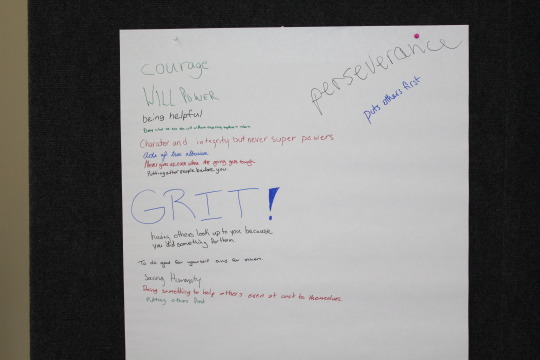 courage
perseverance
WILL POWER
puts others first
being helpful
Charater and integrity but never super powers
Acts of true altruism
Never give up even when the going gets tough
Putting other people before you
GRIT!
having others look up to you because
you did something for them.
To do good for yourself and for others.
Saving Humanity
Doing something to help others even at cost to themselves
Putting others first